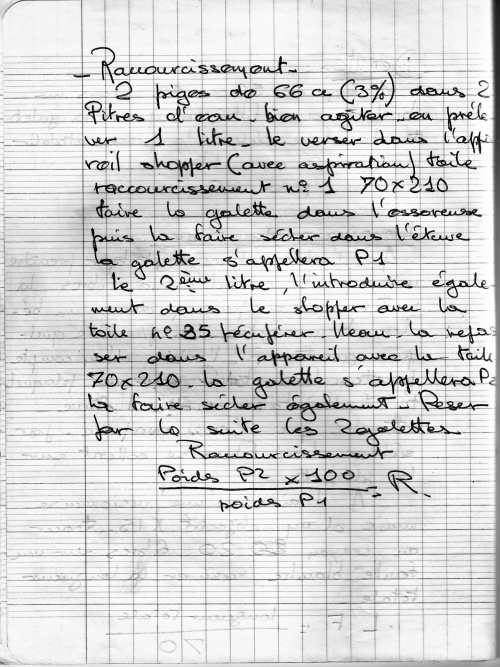 - Raccourcissement -
2 piges de 66 a (3%) dans 2
litres d'eau - bien agiter - en préle
ver 1 litre - le verser dans l'appa
reil shopper (avec aspiration) toile
raccourcissement n° 1 70x210
faire la galette dans l'essoreuse
puis la faire sécher dans l'étuve
la galette s'appellera P1
le 2ème litre, l'introduire égale-
ment dans le shopper avec la
toile n° 35 récupérer l'eau - la repas
ser dans l'appareil avec la toile
70x210 - la galette s'appellera P2
la faire sécher également - Peser
par la suite les 2 galettes
Raccourcissement
Poids P2 x 100
= R.
poids P1